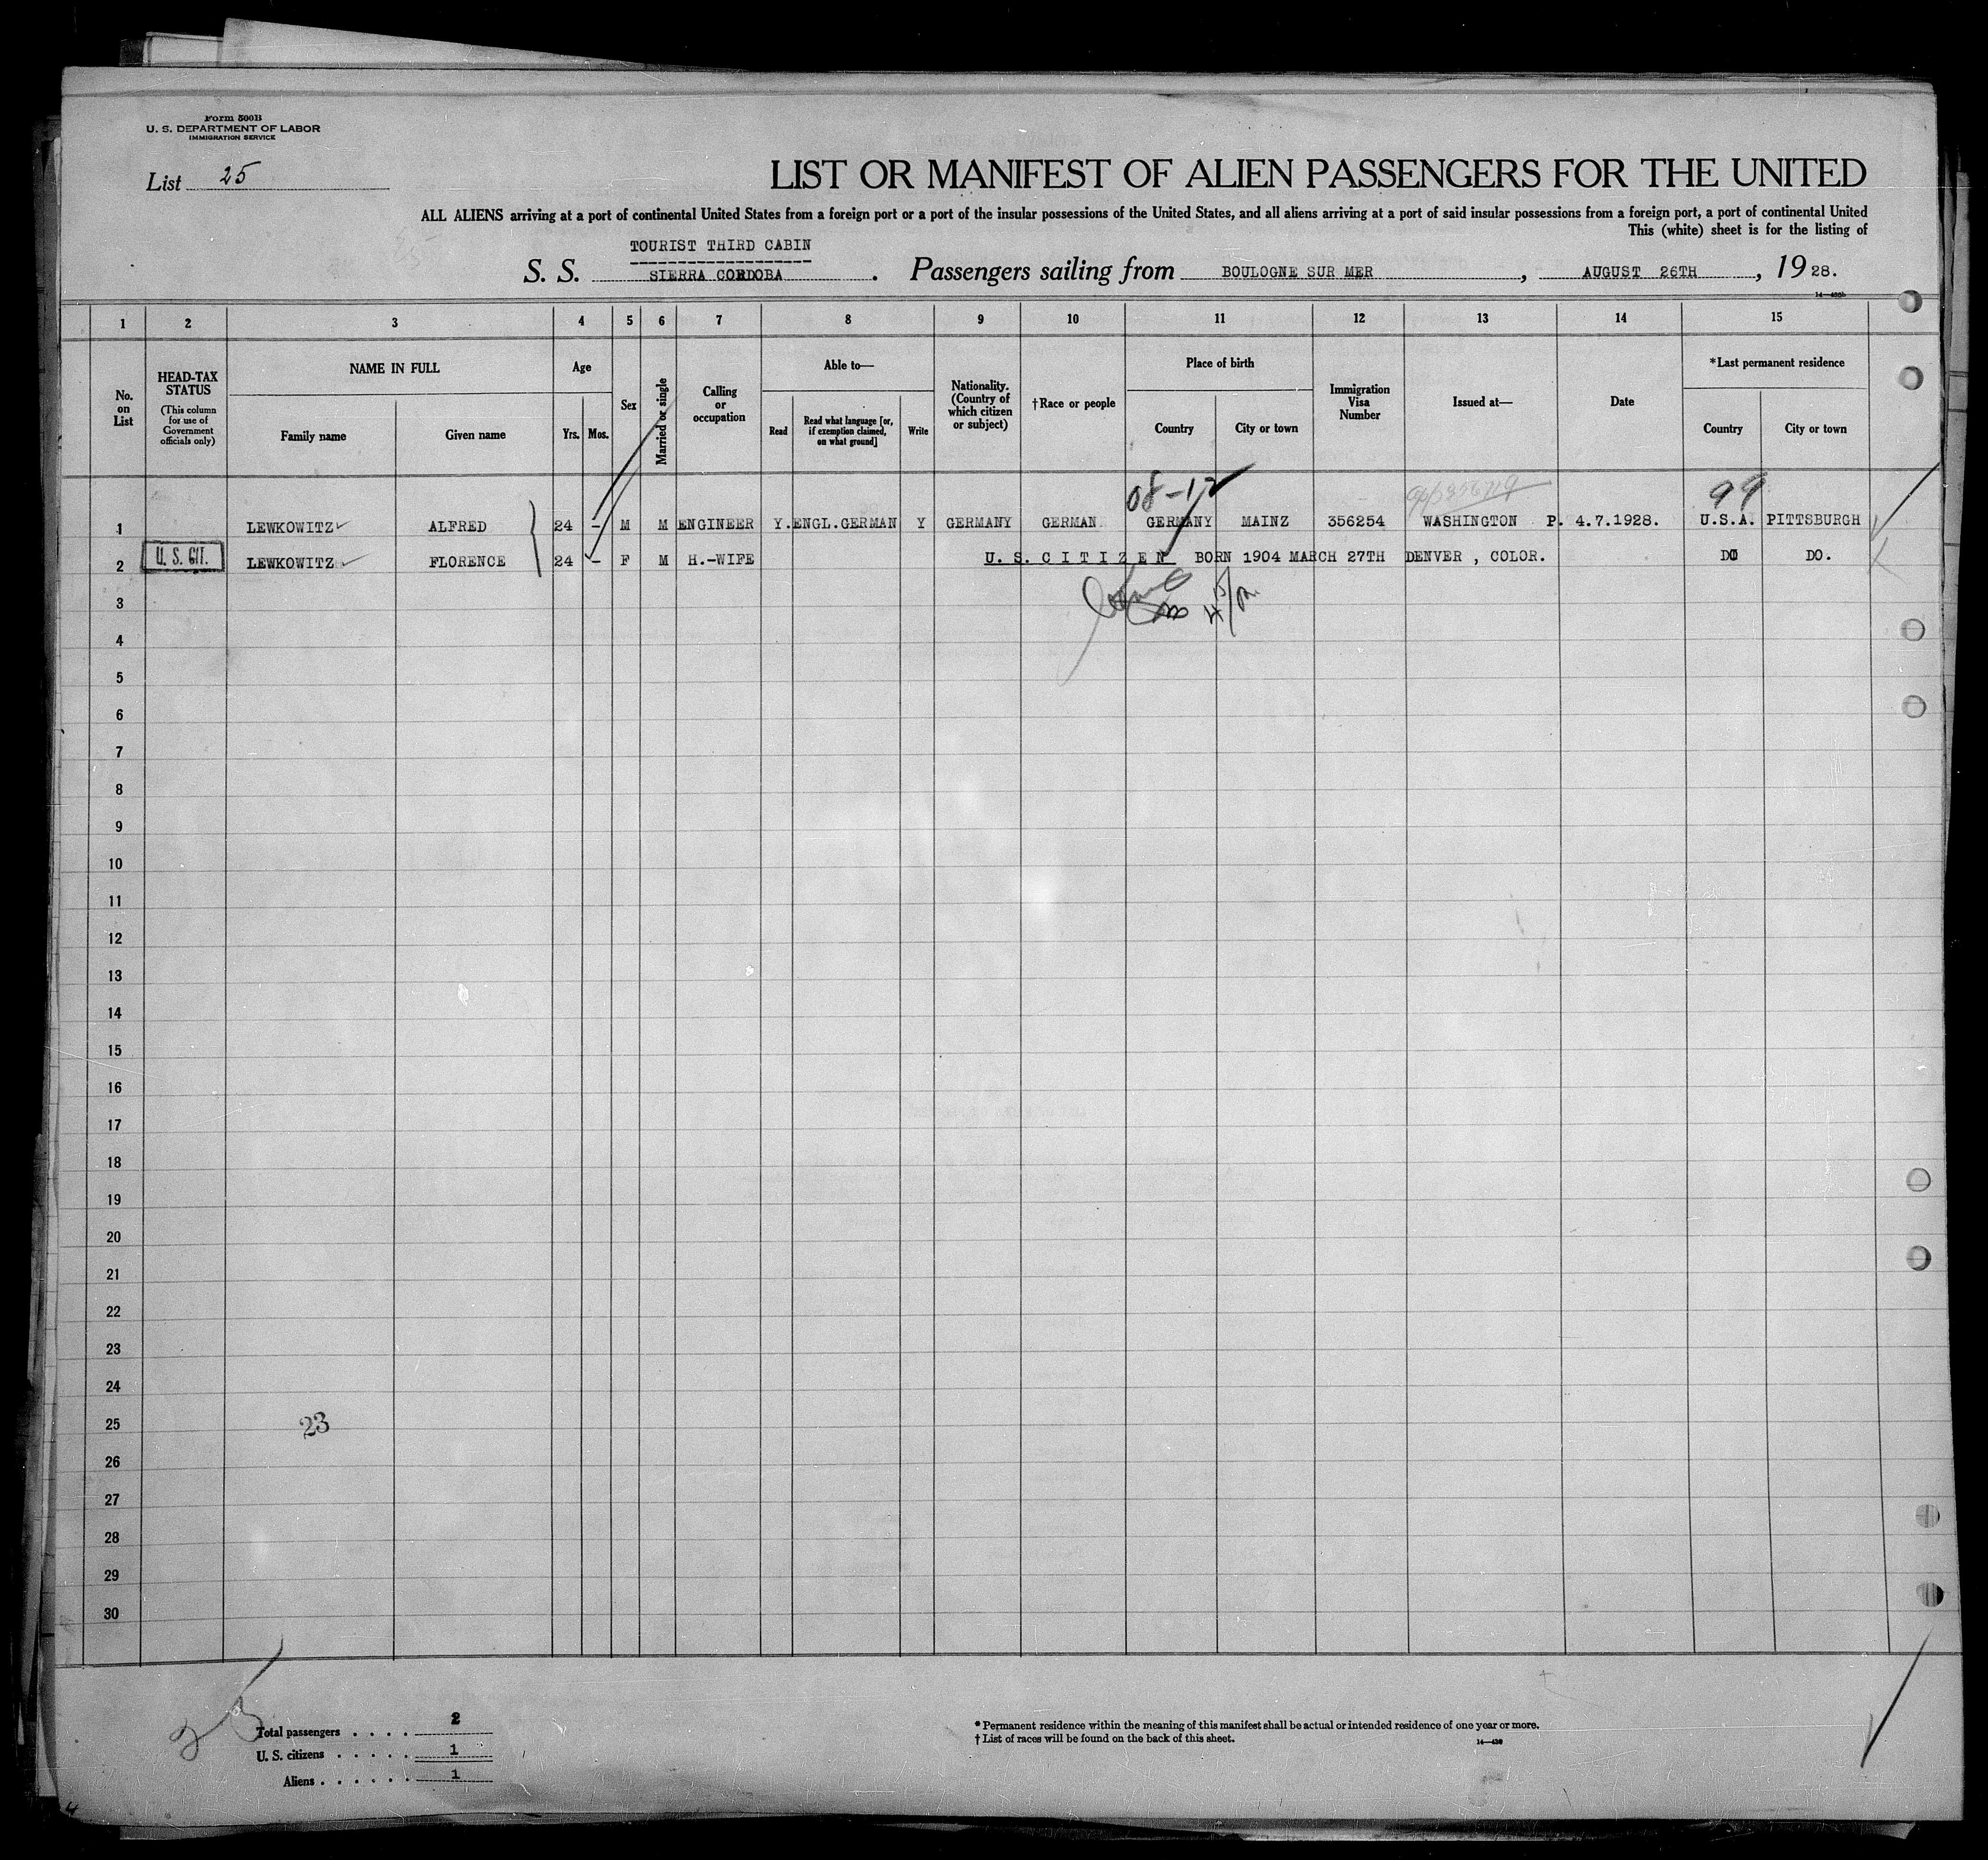 Form 500B
U. S. DEPARTMENT OF LABOR
IMMIGRATION SERVICE
List 25
LIST OR MANIFEST OF ALIEN PASSENGERS FOR THE UNITED
ALL ALIENS arriving at a port of continental United States from a foreign port or a port of the insular possessions of the United States, and all aliens arriving at a port of said insular possessions from a foreign port, a port of continental United
This (white) sheet is for the listing of
TOURIST THIRD CABIN
S. S. SIERRA CORDOBA . Passengers sailing from BOULOGNE SUR MER , AUGUST 26TH , 19 28.
14—430b
1 2 3 4 5 6 7 8 9 10 11 12 13 14 15
No. on List
HEAD-TAX STATUS
(This column for use of Government officials only)
NAME IN FULL
Family name
Given name
Age
Yrs.
Mos.
Sex
Married or single
Calling or occupation
Able to—
Read
Read what language [or, if exemption claimed, on what ground]
Write
Nationality. (Country of which citizen or subject)
†Race or people
Place of birth
Country
City or town
Immigration Visa Number
Issued at—
Date
*Last permanent residence
Country
City or town
08-12
99
1 LEWKOWITZ ALFRED 24 - M M ENGINEER Y. ENGL.GERMAN Y GERMANY GERMAN GERMANY MAINZ 356254 WASHINGTON P. 4.7.1928. U.S.A. PITTSBURGH
2 U. S. CIT. LEWKOWITZ FLORENCE 24 - F M H.-WIFE U. S. C I T I Z E N BORN 1904 MARCH 27TH DENVER , COLOR. DO DO.
3
4
5
6
7
8
9
10
11
12
13
14
15
16
17
18
19
20
21
22
23
24
25 23
26
27
28
29
30
25
Total passengers . . . . 2
U. S. citizens . . . . . 1
Aliens . . . . . . 1
* Permanent residence within the meaning of this manifest shall be actual or intended residence of one year or more.
† List of races will be found on the back of this sheet.
14—430